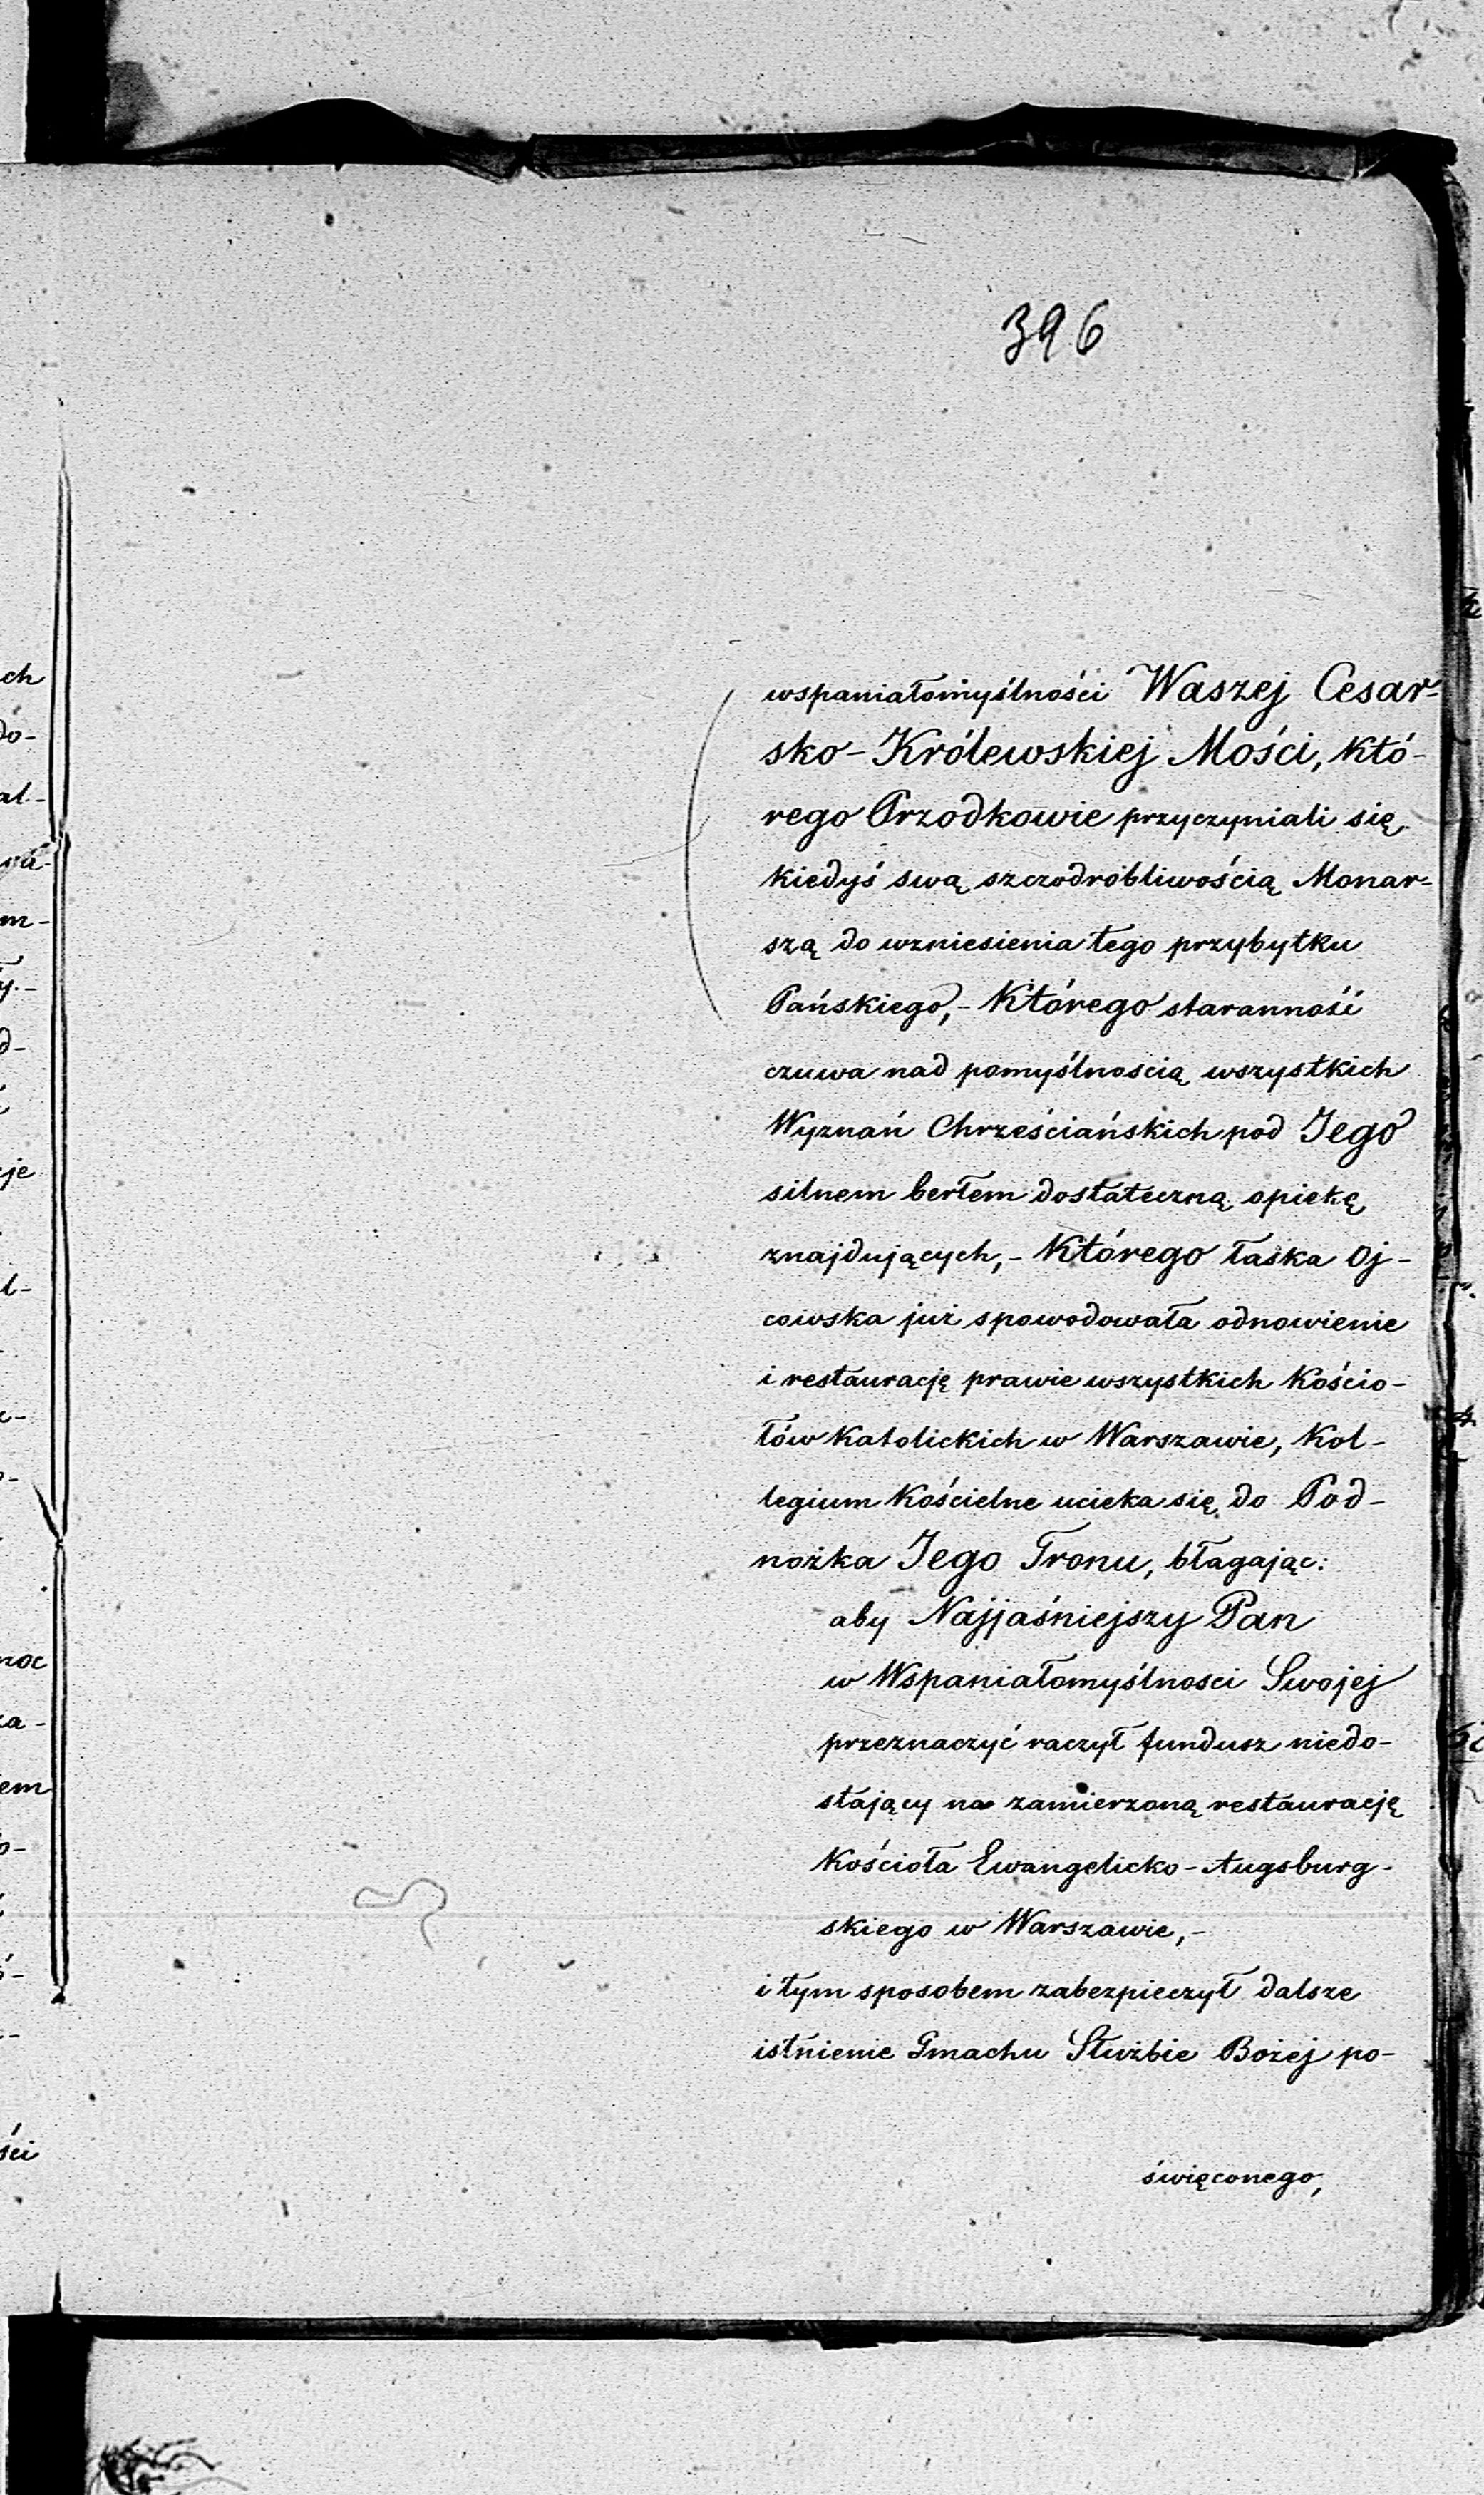 396
wspaniałomyślności Waszej Cesar-
sko-Królewskiej Mości, któ-
rego Przodkowie przyczyniali się
kiedyś swą szczodróbliwością Monar-
szą do wzniesienia tego przybytku
Pańskiego,- Którego staranność
czuwa nad pomyślnoscią wszystkich
Wyznań Chrześciańskich pod Jego
silnem berłem dostateczną opiekę
znajdujących,- Którego łaska Oj-
cowska już spowodowała odnowienie
i restaurację prawie wszystkich Kościo-
łów Katolickich w Warszawie, Kol-
legium Kościelne ucieka się do Pod-
nożka Jego Tronu, błagając:
aby Najjaśniejszy Pan
w Wspaniałomyślnosci Swojej
przeznaczyć raczył fundusz niedo-
stający na zamierzoną restaurację
Kościoła Ewangelicko-Augsburg-
skiego w Warszawie,-
i tym sposobem zabezpieczył dalsze
istnienie Gmachu Służbie Bożej po-
święconego,